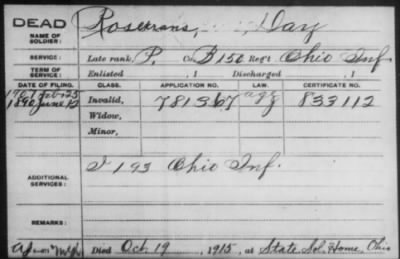 DEAD
NAME OF SOLDIER: Rosecrans, Day
SERVICE: Late rank, P. Co. B 150 Reg't Ohio Inf.
TERM OF SERVICE: Enlisted , 1 Discharged , 1
DATE OF FILING. CLASS. APPLICATION NO. LAW. CERTIFICATE NO.
1907 Feb 25
1890 June 12 Invalid, 781367 833112
Widow,
Minor,
ADDITIONAL SERVICES: I 193 Ohio Inf.
REMARKS:
Died Oct. 19, 1915, at State Sol. Home, Ohio